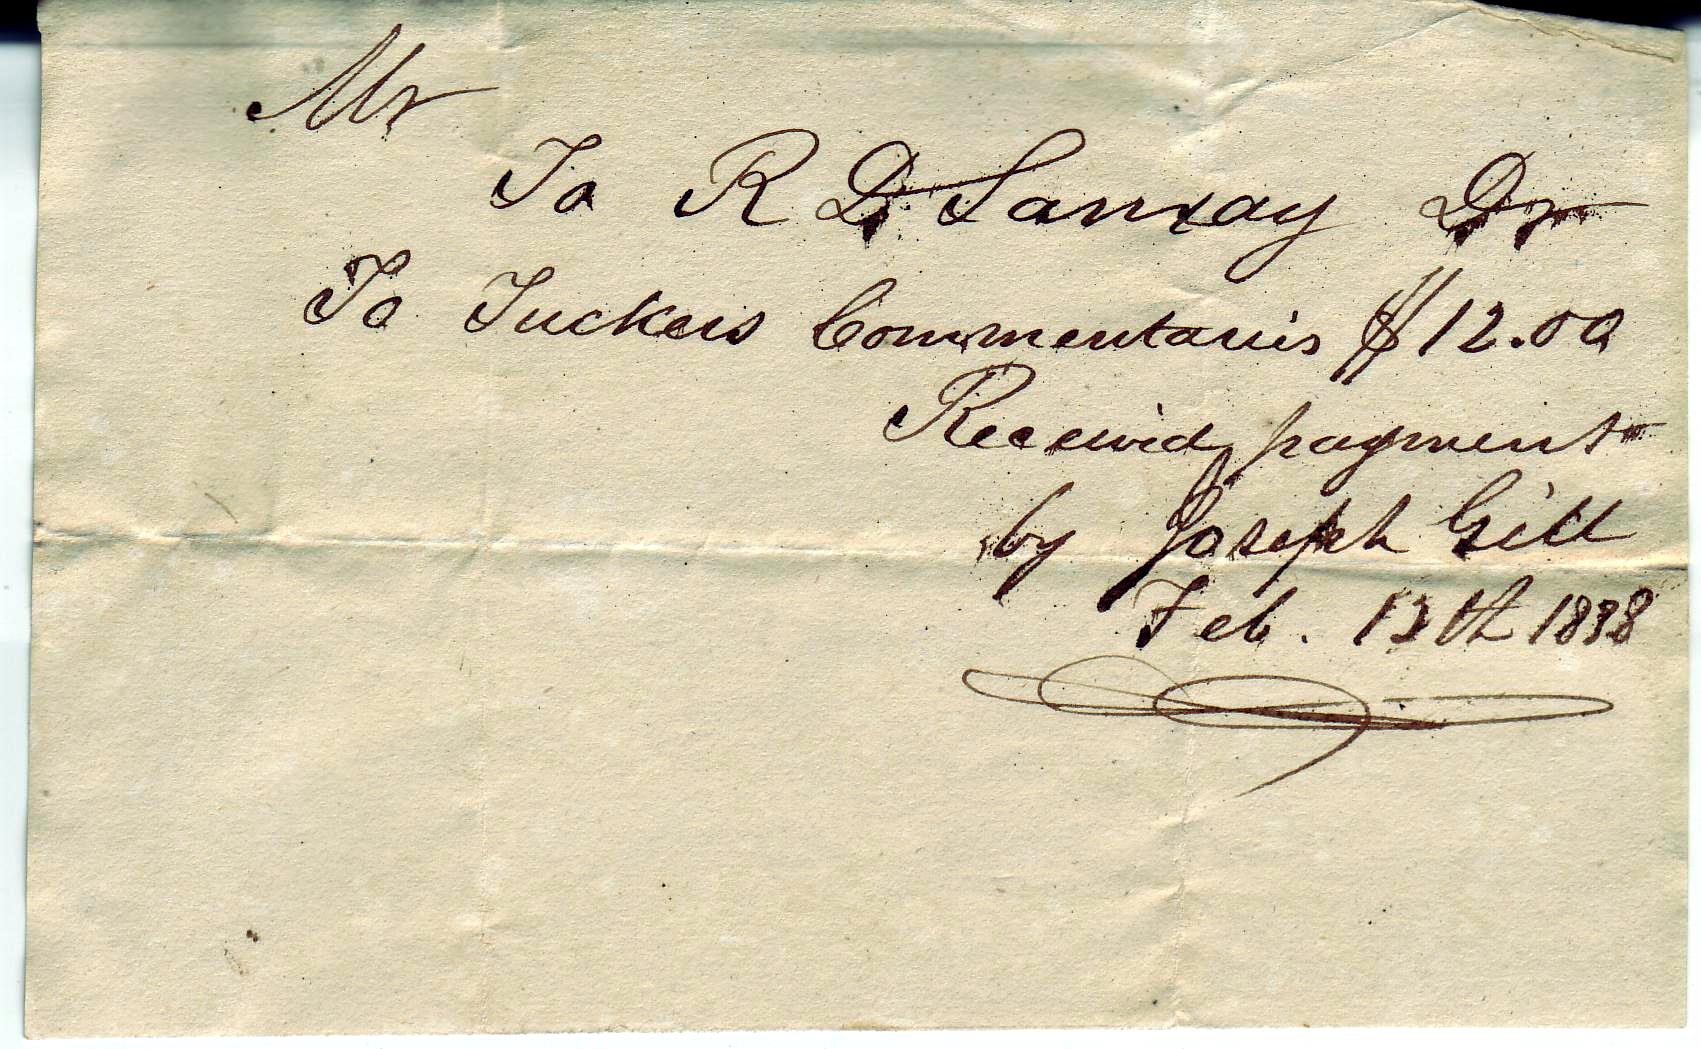 Mr
To R D Sanxay Dr
To Tuckers Commentaries $12.00
Received payment
by Joseph Gill
Feb. 13th 1838